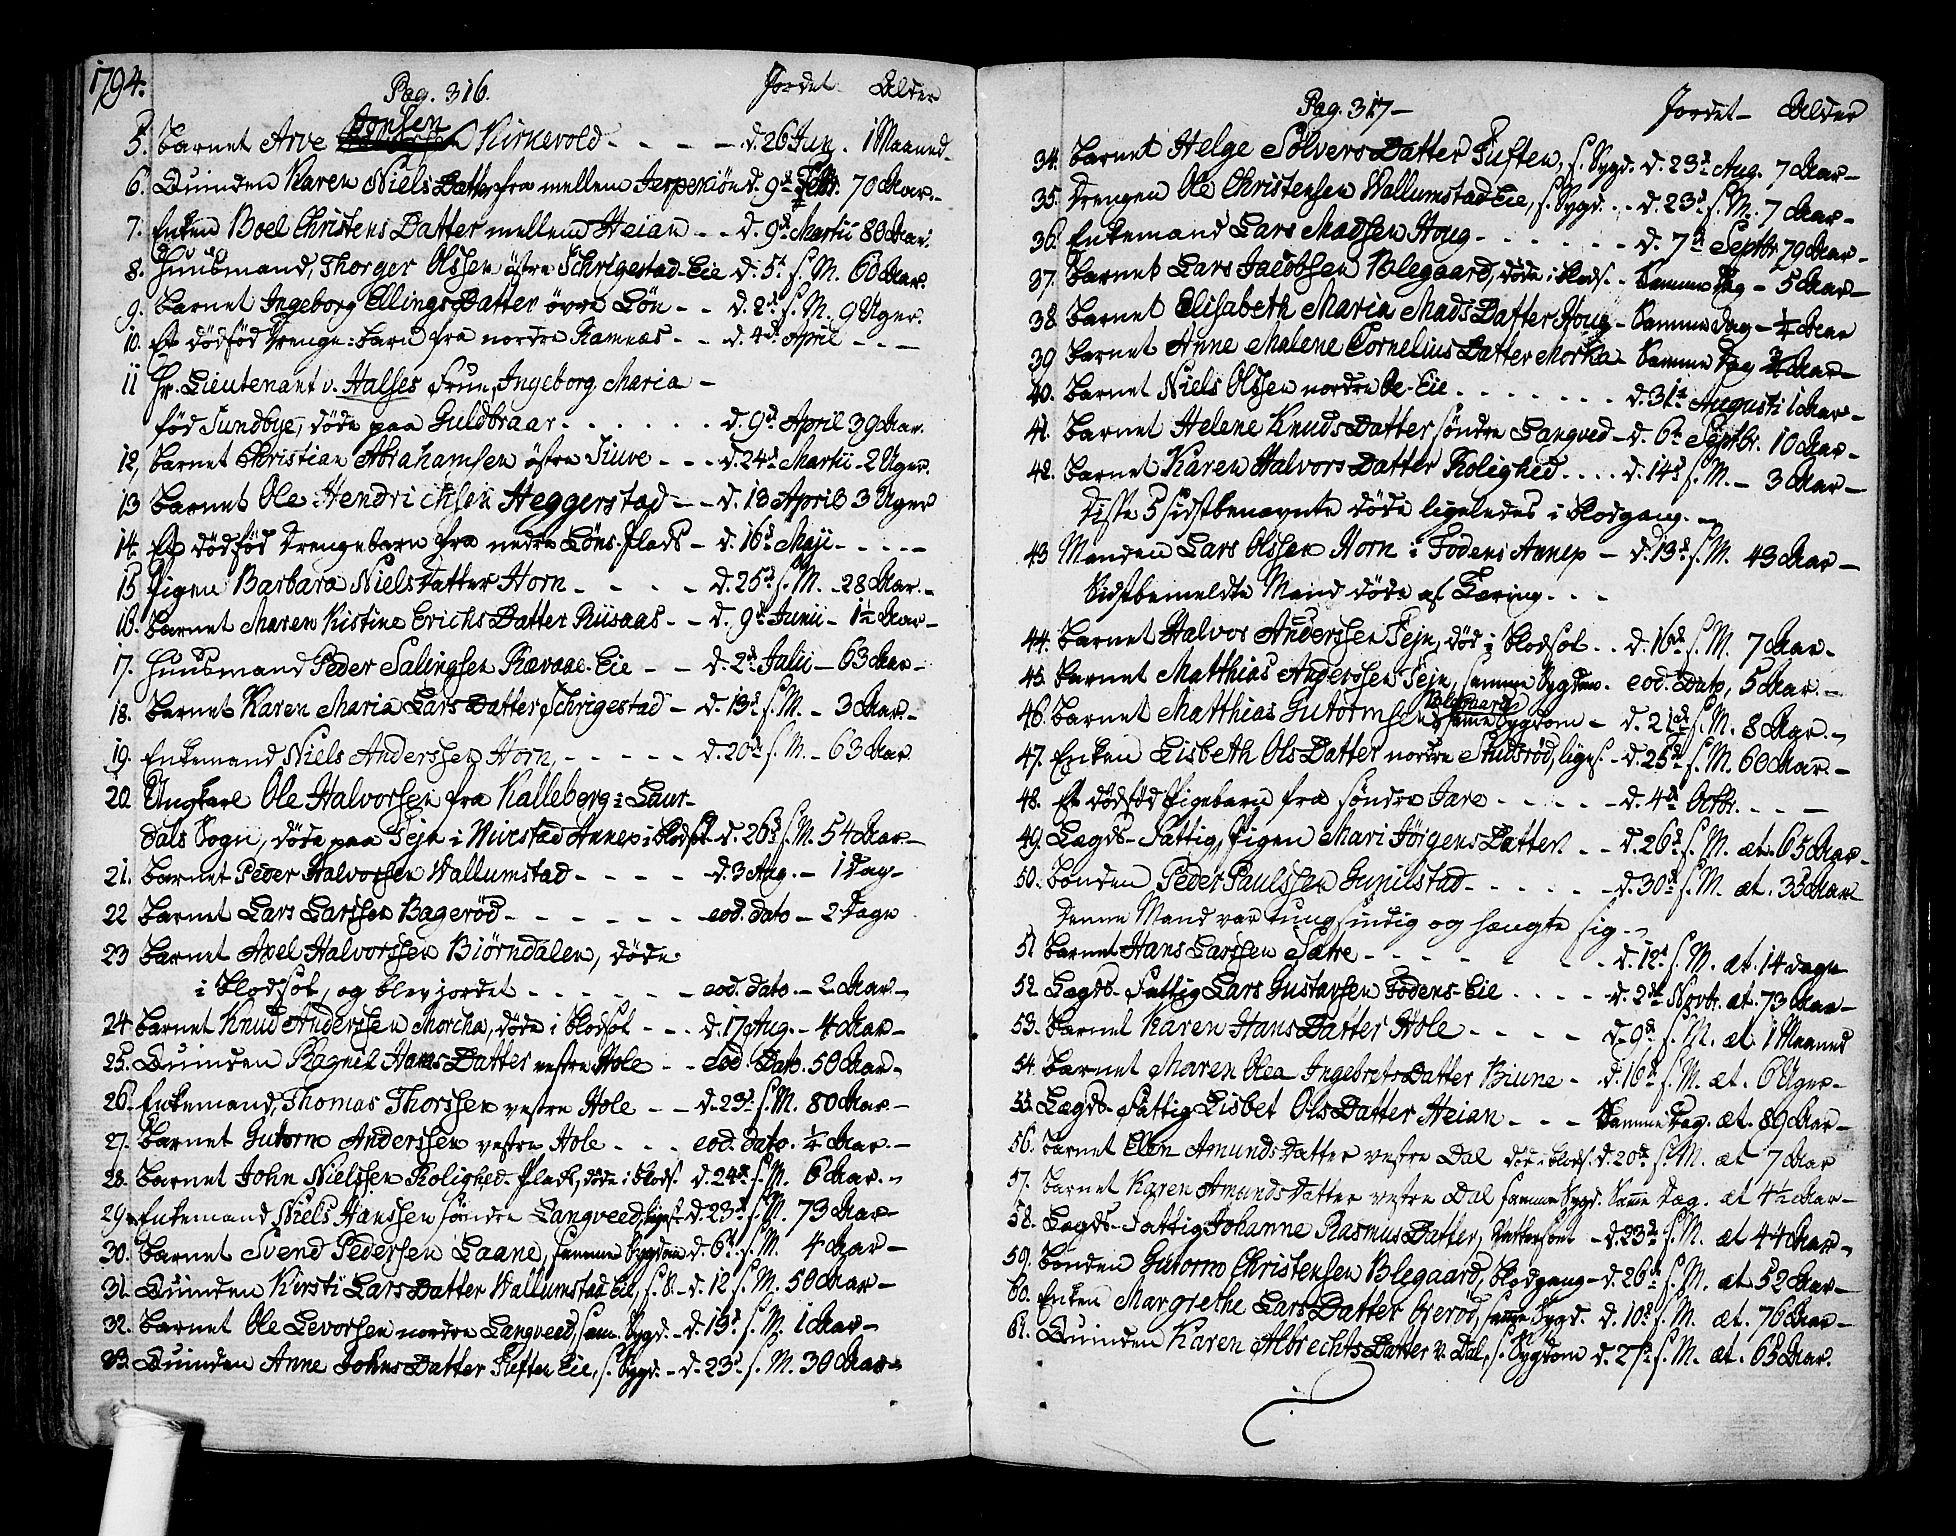 1794.
Pag. 316. Jordet. Alder
5. Barnet Arve Jonsen Kirkevold - - - - d. 26 Jun. 1 Maaned -
6. Quinden Karen Niels Datter fra mellem Jerpekiøn d. 9d Febr. 70 Aar. -
7. Enken Boel Christens Datter mellem Heian - - d. 9d Martii 80 Aar.
8. Huusmand, Thorger Olssen östre Schrigestad-Eie d. 5t s. M. 60 Aar.
9. Barnet Ingeborg Ellings Datter övre Lön - - d. 2d s. M. 9 Uger.
10. Et dödföd Drenge-barn fra nordre Ramnæs - - d. 4d April - - -
11 Hr. Lieutenant v. Halses Frue, Ingeborg Maria -
föd Sundbye, döde paa Guldbraar . . . . . . d. 9d April 39 Aar.
12, Barnet Christian Abrahamsen östre Siuve - - - d. 24d Martii - 2 Uger.
13 Barnet Ole Hendrichsen Heggerstad - - d. 13 April 3 Uger
14. Et dödföd Drengebarn fra nedre Löns-Plads - d. 16d Maji - - - - -
15. Pigen Barbara Niels Datter Horn - - - - d. 25d s. M. - 28 Aar. -
16. Barnet Maren Kistine Erichs Datter Riisaas - - d. 9d Junii - 1½ Aar -
17. Huusmand Peder Salingsen Rævaae-Eie - - d. 2d Julii - 63 Aar -
18. Barnet Karen Maria Lars Datter Schrigestad - d. 13d s. M. - 3 Aar. -
19. Enkemand Niels Anderssen Horn, - - - - - d. 20d s. M. - 63 Aar
20. Ungkarl Ole Halvorssen fra Kalleberg i Laur-
dals Sogn, döde paa Tejn i Vivestad Annex i Blodsot - d. 26d s. M. 54 Aar. -
21. Barnet Peder Halvorssen Vallumstad - - - - d. 3 Aug. - 1 Dag -
22 Barnet Lars Larssen Bagerød - - - - - - eod. dato - 2 Dage
23 Barnet Axel Halvorssen Biørndalen, döde
i Blodsot, og blev jordet - - - - - eod. dato. - 2 Aar -
24. Barnet Knud Anderssen Morcha, döde i Blodsot - - - d. 17 Aug. - 4 Aar -
25. Quinden Ragnil Hans Datter vestre Hole - - eod. Dato. 50 Aar -
26. Enkemand, Thomas Thorssen vestre Hole - - d. 23d s. M. 80 Aar. -
27. Barnet Gutorm Anderssen vestre Hole - - - eod. dato. ¼ Aar. -
28. Barnet John Nielssen Rolighed-Plads, döde i Blods. d. 24d s. M. 6 Aar. -
29. Enkemand Niels Hanssen søndre Langveed, d. 23d s. M. 73 Aar -
30. Barnet Svend Pedersen Laane, samme Sygdom d. 6t s. M. 4 Aar -
31. Quinden Kirsti Lars Datter Wallumstad Eie, s. S. - d. 12 s. M. 50 Aar -
32. Barnet Ole Levorsen nordre Langveed, sam. Sygd. - d. 15d s. M. 1 Aar -
33. Quinden Anne Johns Datter Tuften Eie, s. Sygd. - d. 23d s. M. 30 Aar -
Pag. 317 - Jordet - Alder
34. Barnet Helge Sölvers Datter Tuften, s. Sygd. d. 23d Aug. 7 Aar -
35. Drengen Ole Christensen Wallumstad Eie, s. Sygd. - - d. 23d s. M. 7 Aar -
36. Enkemand Lars Madsen Houg - - - - - - d. 7d Septbr 79 Aar -
37. Barnet Lars Jacobsen Blegaard, döde i Blods. - Samme Dag - 5 Aar -
38. Barnet Elisabeth Maria Mads Datter Houg - Samme dag - ¼ Aar
39 Barnet Anne Malene Cornelius Datter Morka Samme Dag Aar -
40. Barnet Niels Olssen nordre Eie . . . . . . . d. 31t Augusti 1 Aar -
41. Barnet Helene Knuds Datter söndre Langved - d. 6t Septbr. 10 Aar -
42. Barnet Karen Halvors Datter Rolighed . . . . d. 14d s. M. - 3 Aar -
Disse 5 sidstbenævnte döde ligeledes i Blodgang. -
43 Manden Lars Olssen Horn i Fodens Annex - d. 13d s. M. 43 Aar -
Sidstbemeldte Mand döde af Tæring. - -
44. Barnet Halvor Anderssen Tejn, död i Blodsot . . d. 16d s. M. 7 Aar -
45. Barnet Matthias Anderssen Tejn, samme Sygdom. eod. Dato, 5 Aar. -
46. Barnet Matthias Gutormsen samme Sygdom - d. 21d s. M. 8 Aar. -
47. Enken Lisbeth Ols Datter nordre Studsrød, liges. - d. 25d s. M. 60 Aar. -
48. Et dödföd Pigebarn fra søndre Jare - - - - - d. 4d Octbr. - - - -
49. Lægds-Fattig, Pigen Mari Jörgens Datter - - d. 26d s. M. æt. 65 Aar -
50. Bonden Peder Paulssen Gunilstad - - - - - - d. 30d s. M. æt. 33 Aar -
Denne Mand var tungsindig og hængte sig - -
51 Barnet Hans Larssen Sætre - - - - - - - - d. 12t s. M. æt. 14 dage
52. Lægds-Fattig Lars Gustavsen Fodens-Eie . . . . - d. 2d Novbr. æt. 73 Aar -
53. Barnet Karen Hans Datter Hole - - - - d. 9d s. M. æt 1 Maaned
54. Barnet Maren Olea Ingebrets Datter Biune - d. 16d s. M. æt. 6 Uger -
55. Lægds-Fattig Lisbet Ols Datter Heian - - - Samme Dag. æt. 89 Aar -
56. Barnet Elen Amunds Datter vestre Dal döde i Blods. d. 20d s. M. æt 7 Aar
57. Barnet Karen Amunds Datter vestre Dal samme Sygd. Same Dag. æt 4½ Aar -
58. Lægds-Fattig Johanne Rasmus Datter, Vattersot - d. 23d s. M. æt 44 Aar -
59. Bonden Gutorm Christensen Blegaard, Blodgang - d. 26d s. M. æt 52 Aar -
60. Enken Margrethe Lars Datter Gierød, same Sygd. d. 10d s. M. æt. 76 Aar -
61. Quinden Karen Albrechts Datter v. Dal, s. Sygdom d. 27d s. M. æt. 63 Aar.